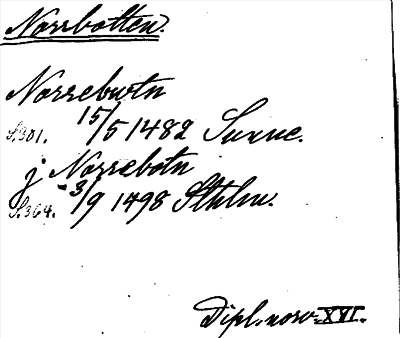 Norrbotten.
Norrebwtn
S.301. 15/5 1482 Sunne.
j Norrebotn
S.364. 3/9 1498 Sthlm.
Dipl. norv. XVI.